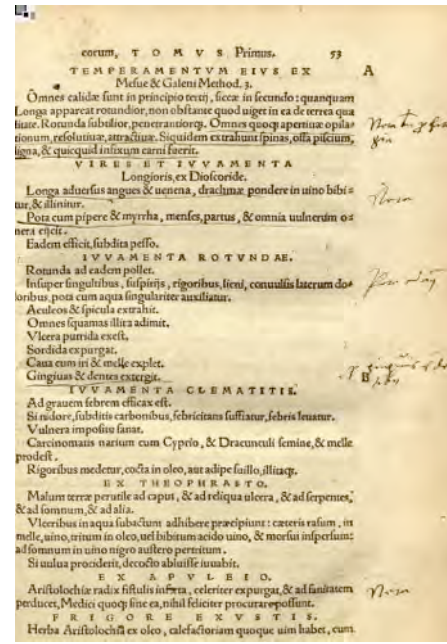 eorum, TOMVS Primus. 53
TEMPERAMENTVM EIVS EX A
Mesue & Galeni Method. 3.
Omnes calidæ sunt in principio tertij, siccæ in secundo: quanquam
Longa apparcat rotundior, non obstante quod uiget in ea de terrea qua
litate. Rotunda subtilior, penetrantiorq;. Omnes quoq; aperitiuæ opila-
tionum, resolutiuæ, attractiuæ. Siquidem extrahunt spinas, ossa piscium,
ligna, & quicquid infixum carni fuerit.
VIRES ET IVVAMENTA
Longioris, ex Dioscoride.
Longa aduersus angues & uenena, drachmæ pondere in uino bibi-
tur, & illinitur.
Pota cum pipere & myrrha, menses, partus, & omnia uulnerum o-
nera eijcit.
Eadem efficit, subdita pesso.
IVVAMENTA ROTVNDAE.
Rotunda ad eadem pollet.
Insuper singultibus, suspirijs, rigoribus, lieni, conuulsis laterum do-
loribus, pota cum aqua singulariter auxiliatur.
Aculeos & spicula extrahit.
Omnes squamas illita adimit.
Vlcera putrida exest.
Sordida expurgat.
Caua cum iri & melle explet.
Gingiuas & dentes extergit. B
IVVAMENTA CLEMATITIS.
Ad grauem febrem efficax est.
Si nidore, subditis carbonibus, febricitans suffiatur, febris leuatur.
Vulnera imposita sanat.
Carcinomatis narium cum Cyprio, & Dracunculi semine, & melle
prodest.
Rigoribus medetur, cocta in oleo, aut adipe suillo, illitaq;.
EX THEOPHRASTO.
Malum terræ perutile ad caput, & ad reliqua ulcera, & ad serpentes,
& ad somnum, & ad alia.
Vlceribus in aqua subactum adhibere præcipiunt: cæteris rasum, in
melle, uino, tritum in oleo, uel bibitum acido uino, & morsui inspersum:
ad somnum in uino nigro austero pertritum.
Si uulua prociderit, decocto abluisse iuuabit.
EX APVLEIO.
Aristolochiæ radix fistulis inserta, celeriter expurgat, & ad sanitatem
perducet, Medici quoq; sine ea, nihil feliciter procurare possunt.
FRIGORE EXVSTIS.
Herba Aristolochia ex oleo, calefactoriam quoque uim habet, cum